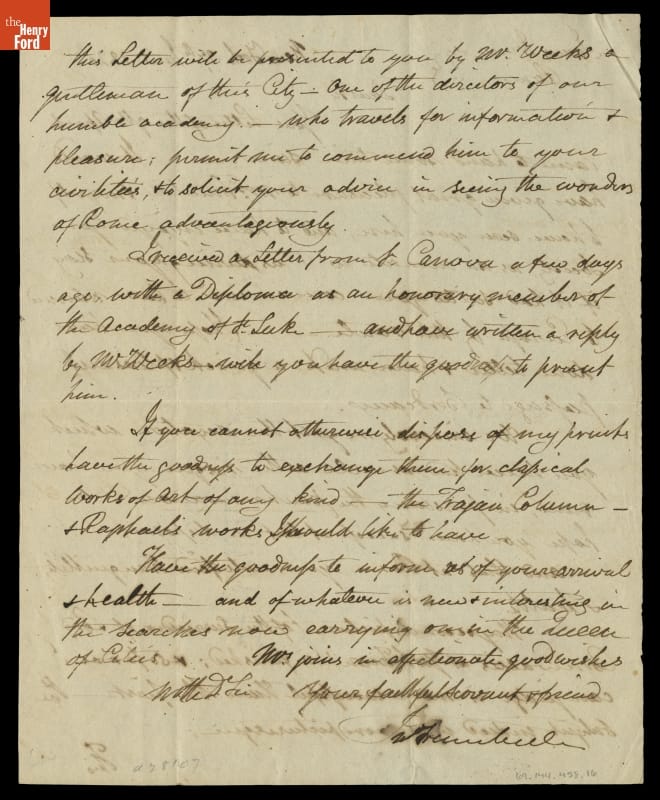 the
Henry
Ford
This Letter will be presented to you by Mr. Weeks a
gentleman of this City — One of the directors of our
humble academy — who travels for information &
pleasure; permit me to commend him to your
civilities, & to solicit your advice in seeing the wonders
of Rome advantageously.
I received a Letter from S. Canova a few days
ago with a Diploma as an honorary member of
the Academy of St. Luke — and have written a reply
by Mr. Weeks — will you have the goodness to present
him.
If you cannot otherwise dispose of my prints
have the goodness to exchange them for classical
works of Art of any kind — the Trajan Column —
& Raphael's works I should like to have
Have the goodness to inform us of your arrival
& health — and of whatever is new & interesting in
the searches now carrying on in the Queen
of Cities Mrs joins in affectionate good wishes
with Dr Sir Your faithful servant & friend
Jn Trumbull
a28167